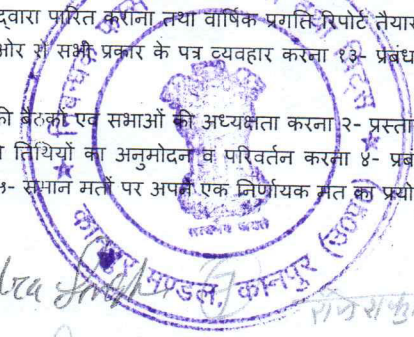 द्वारा पारित कराना तथा वार्षिक प्रगति रिपोर्ट तैयार
ओर से सभी प्रकार के पत्र व्यवहार करना १३- प्रबंध
की बैठकों एवं सभाओं की अध्यक्षता करना २- प्रस्ता
तिथियों का अनुमोदन व परिवर्तन करना ४- प्रबं
५- समान मतों पर अपने एक निर्णायक मत का प्रयो
सत्यमेव जयते
कानपुर मण्डल, कानपुर (उ०प्र०)